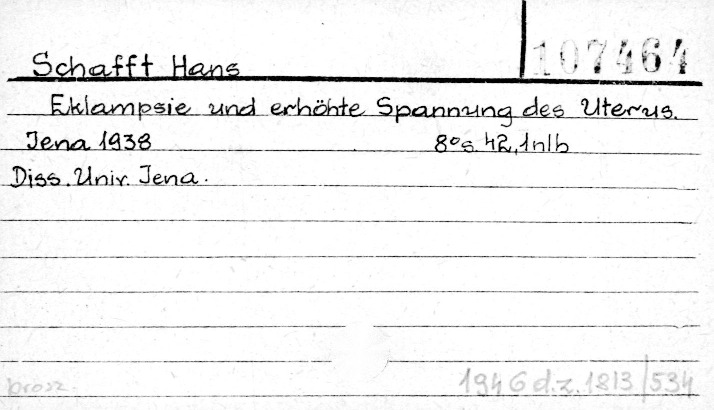 107464
Schafft Hans
Eklampsie und erhöhte Spannung des Uterus.
Jena 1938 8° s. 42, 1nlb
Diss. Univ. Jena.
brosz. 1946 d.z. 1813/534